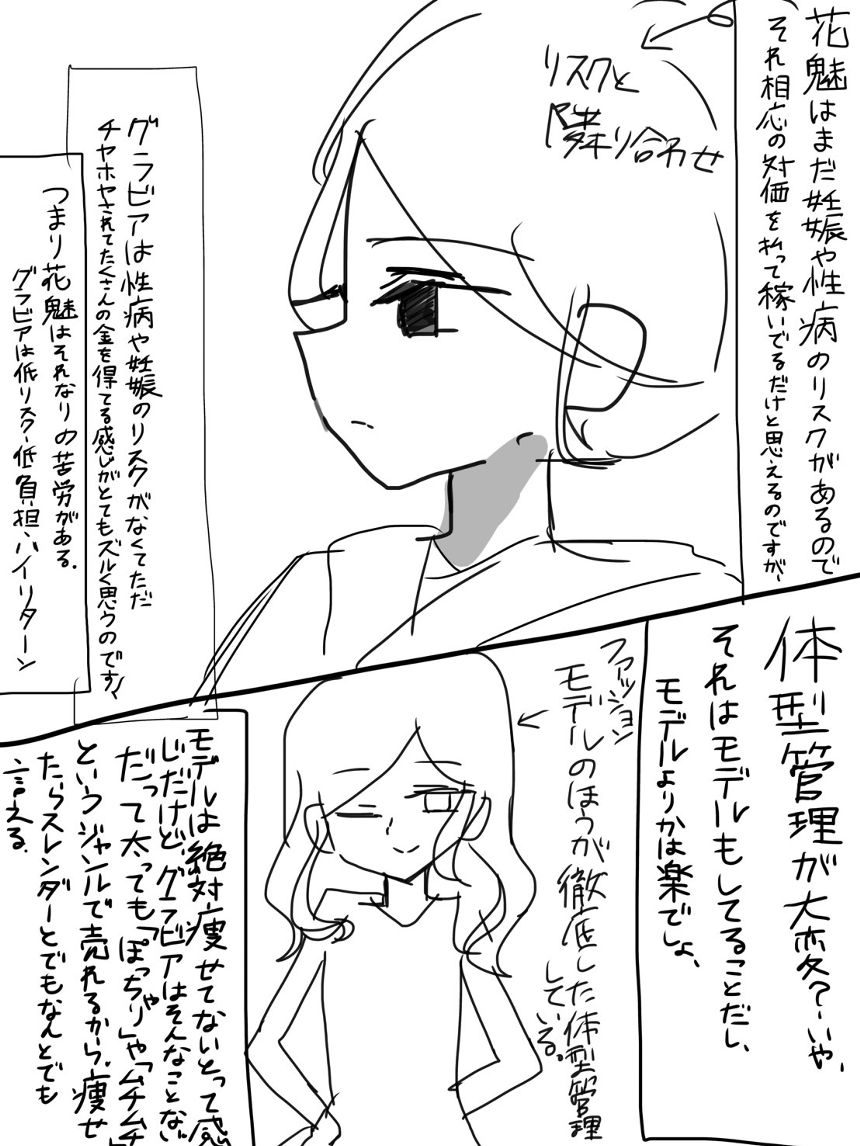 花魁はまだ妊娠や性病のリスクがあるので
それ相応の対価を払って稼いでるだけと思えるのですが、
リスクと
隣り合わせ
グラビアは性病や妊娠のリスクがなくてただ
チヤホヤされてたくさんの金を得てる感じがとてもズルく思うのです、
つまり花魁はそれなりの苦労がある.
グラビアは低リスク、低負担、ハイリターン
体型管理が大変?いや、
それはモデルもしてることだし、
モデルよりかは楽でしょ、
ファッション
モデルのほうが徹底した体型管理
している.
モデルは絶対痩せてないとって感
じだけど、グラビアはそんなことない
だって太っても「ぽっちゃり」や「ムチムチ」
というジャンルで売れるから、痩せ
たらスレンダーとでもなんとでも
言える.